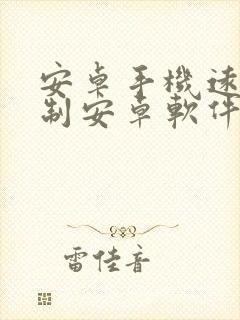 安卓手機速
制安卓軟件
雷佳音